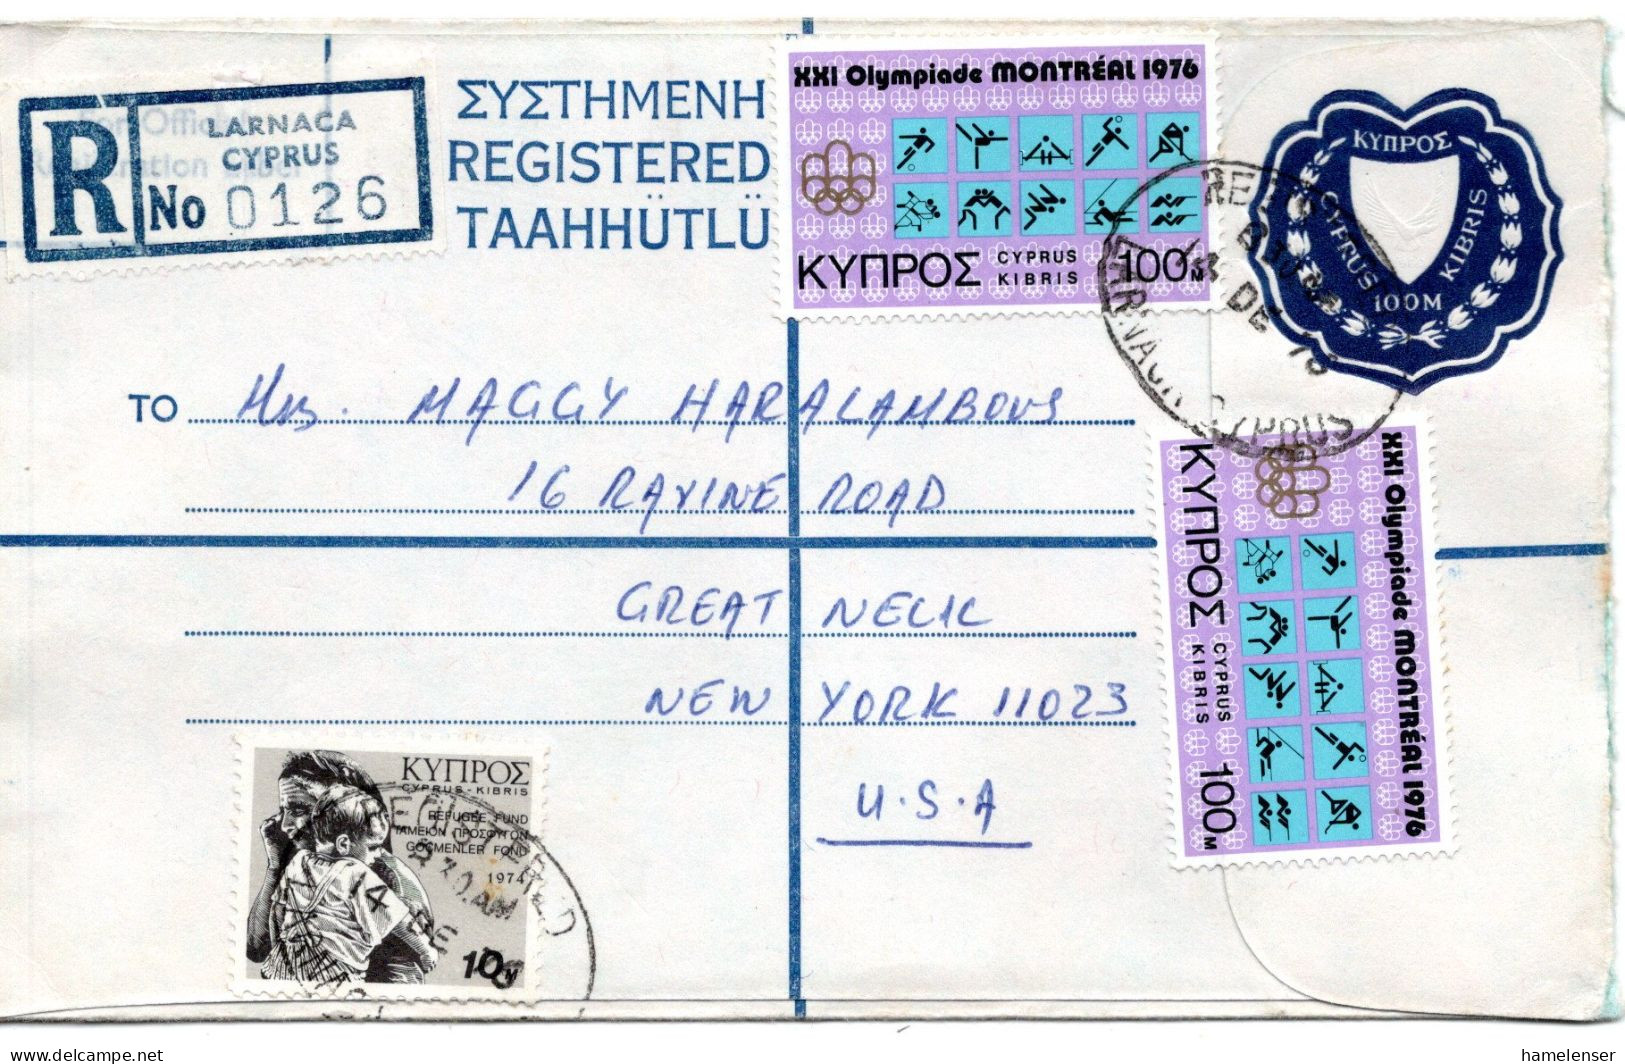 R
For Official
LARNACA
CYPRUS
No 0126
ΣΥΣΤΗΜΕΝΗ
REGISTERED
TAAHHÜTLÜ
XXI Olympiade MONTRÉAL 1976
ΚΥΠΡΟΣ CYPRUS KIBRIS 100M
ΚΥΠΡΟΣ
CYPRUS
KIBRIS
100M
14 DE 76
CYPRUS
TO Mrs. MAGGY HARALAMBOUS
16 RAVINE ROAD
GREAT NECK
NEW YORK 11023
U.S.A
XXI Olympiade MONTRÉAL 1976
ΚΥΠΡΟΣ CYPRUS KIBRIS 100M
ΚΥΠΡΟΣ
CYPRUS - KIBRIS
REFUGEE FUND
ΤΑΜΕΙΟΝ ΠΡΟΣΦΥΓΩΝ
GÖÇMENLER FONU
1974
10M
REGISTERED
8 30.AM
14 DE
delcampe.net
hamelenser